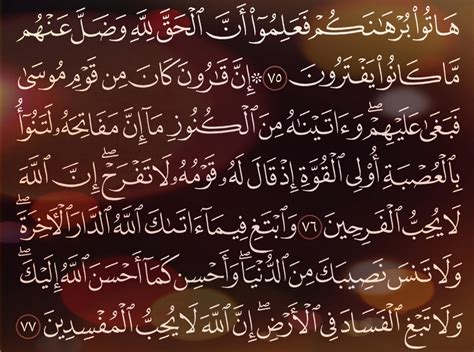 هَاتُوا۟ بُرْهَـٰنَكُمْ فَعَلِمُوٓا۟ أَنَّ ٱلْحَقَّ لِلَّهِ وَضَلَّ عَنْهُم
مَّا كَانُوا۟ يَفْتَرُونَ ٧٥ ۞ إِنَّ قَـٰرُونَ كَانَ مِن قَوْمِ مُوسَىٰ
فَبَغَىٰ عَلَيْهِمْ ۖ وَءَاتَيْنَـٰهُ مِنَ ٱلْكُنُوزِ مَآ إِنَّ مَفَاتِحَهُۥ لَتَنُوٓأُ
بِٱلْعُصْبَةِ أُو۟لِى ٱلْقُوَّةِ إِذْ قَالَ لَهُۥ قَوْمُهُۥ لَا تَفْرَحْ ۖ إِنَّ ٱللَّهَ
لَا يُحِبُّ ٱلْفَرِحِينَ ٧٦ وَٱبْتَغِ فِيمَآ ءَاتَىٰكَ ٱللَّهُ ٱلدَّارَ ٱلْـَٔاخِرَةَ ۖ
وَلَا تَنسَ نَصِيبَكَ مِنَ ٱلدُّنْيَا ۖ وَأَحْسِن كَمَآ أَحْسَنَ ٱللَّهُ إِلَيْكَ ۖ
وَلَا تَبْغِ ٱلْفَسَادَ فِى ٱلْأَرْضِ ۖ إِنَّ ٱللَّهَ لَا يُحِبُّ ٱلْمُفْسِدِينَ ٧٧